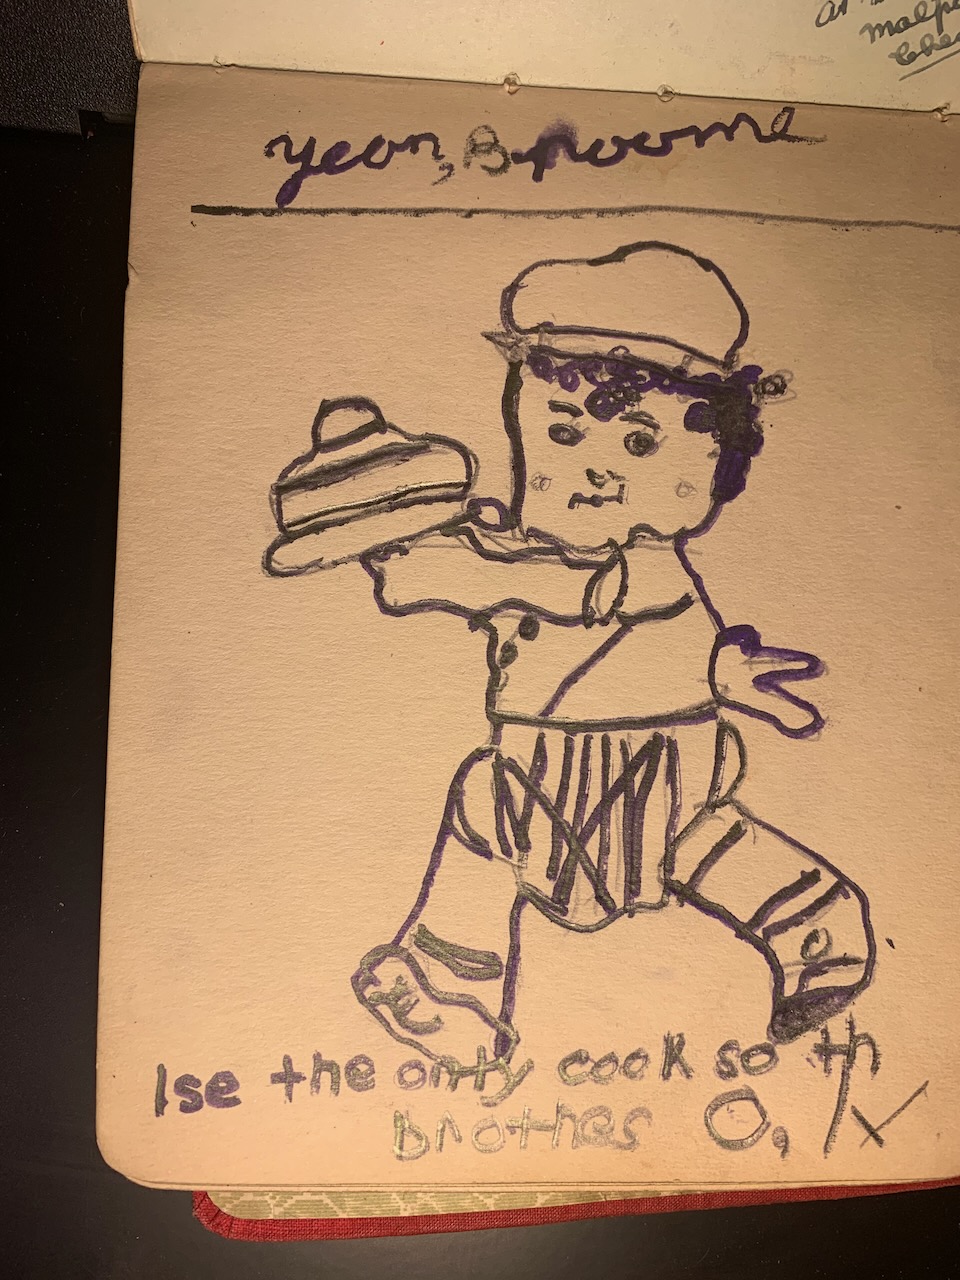 at
Yeon, B. poome
Ise the only cook so th
brothes O, K